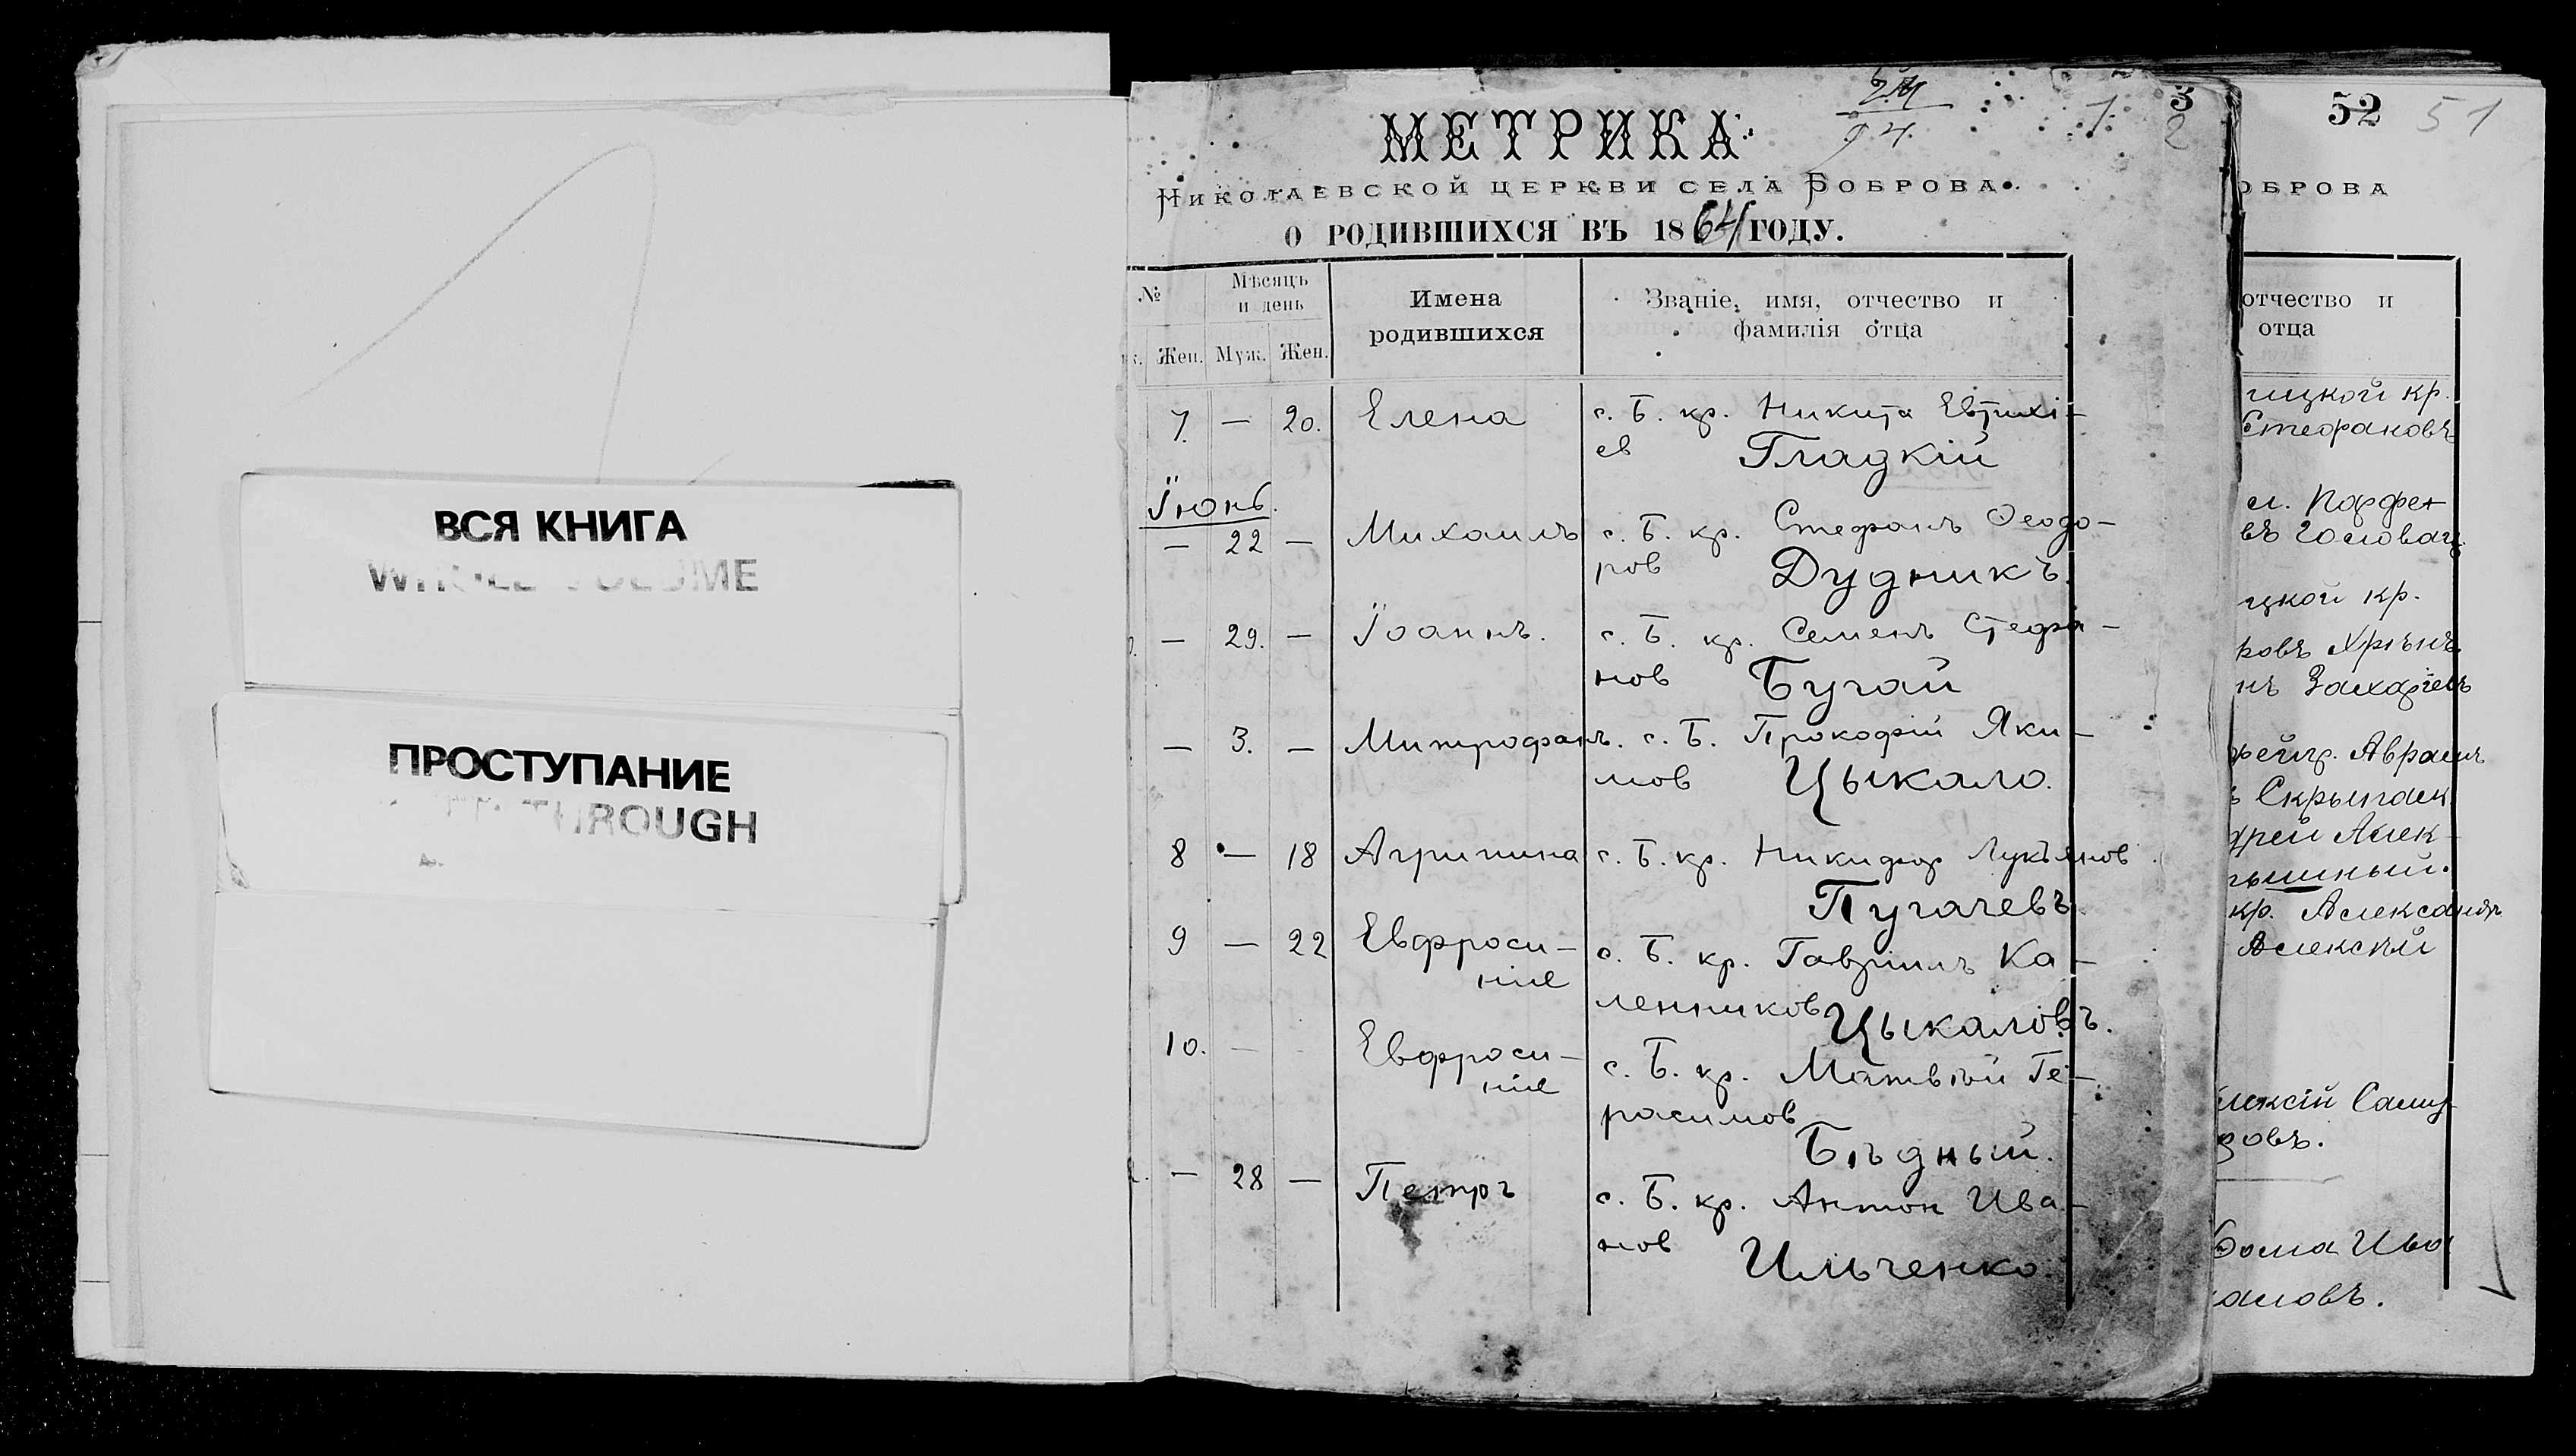 ВСЯ КНИГА
ПРОСТУПАНИЕ
THROUGH
МЕТРИКА
3
2
НИКОЛАЕВСКОЙ ЦЕРКВИ СЕЛА БОБРОВА
О РОДИВШИХСЯ ВЪ 1864 ГОДУ.
№ Мѣсяцъ и день Имена родившихся Званіе, имя, отчество и фамилія отца
Жен. Муж. Жен.
7. — 20. Елена с. Б. кр. Никита Евтихі-
ев Гладкій
Їюнь.
— 22 — Михаилъ с. Б. кр. Стефанъ Ѳеодо-
ров Дудникъ.
— 29. — Їоаннъ. с. Б. кр. Семенъ Стефа-
нов Бугай
— 3. — Митрофанъ. с. Б. Прокофій Яки-
мов Цыкало.
8 — 18 Агрипина с. Б. кр. Никифор Лукъянов
Пугачевъ.
9 — 22 Евфроси- с. Б. кр. Гавріилъ Ка-
нія
ленников Цыкаловъ.
10. — Евфроси- с. Б. кр. Матвѣй Ге-
нія
расимов
Бѣдный.
— 28 — Петръ с. Б. кр. Антон Ива-
нов Ильченко.
52 51
ОБРОВА
отчество и
отца
ицкой кр.
Стефановъ
въ Головач.
цкой кр.
ровъ Хрѣнъ
нъ Захаріевъ
Аврамъ
дрей Алек-
кр. Александръ
Алексѣй
лексій Саму-
довъ.
Фома Ива